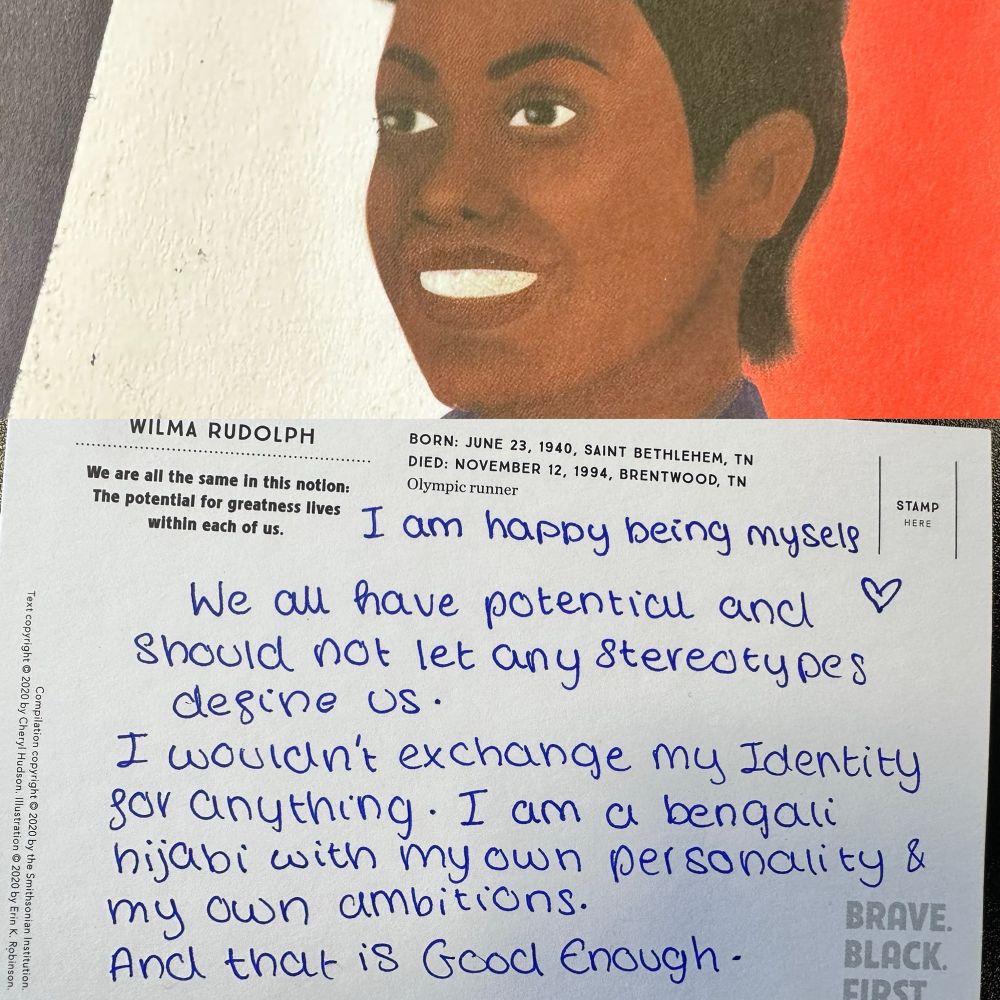 WILMA RUDOLPH
We are all the same in this notion:
The potential for greatness lives
within each of us.
BORN: JUNE 23, 1940, SAINT BETHLEHEM, TN
DIED: NOVEMBER 12, 1994, BRENTWOOD, TN
Olympic runner
STAMP
HERE
I am happy being myself
We all have potential and
should not let any stereotypes
define us.
I wouldn't exchange my Identity
for anything. I am a bengali
hijabi with my own personality &
my own ambitions.
And that is Good Enough.
BRAVE.
BLACK.
FIRST
Compilation copyright © 2020 by the Smithsonian Institution.
Text copyright © 2020 by Cheryl Hudson. Illustration © 2020 by Erin K. Robinson.